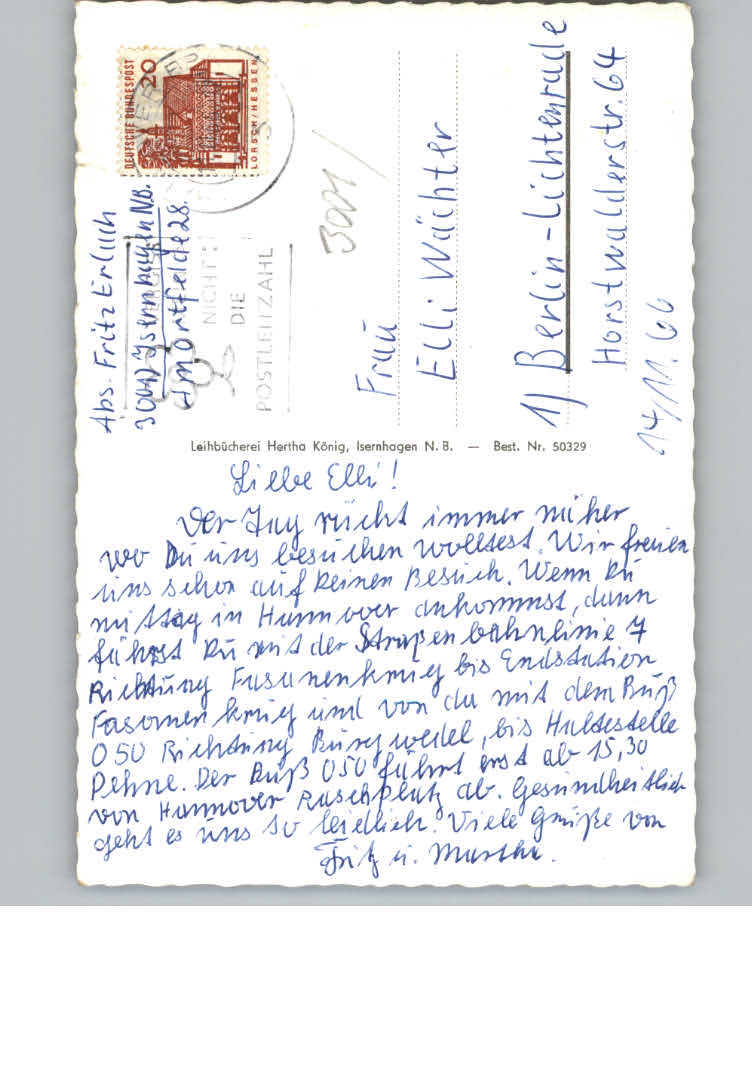 DEUTSCHE BUNDESPOST
20
LORSCH/HESSEN
Abs. Fritz Erlach
3001) Isernhagen N.B.
Am Ortfelde 28.
NICHT
DIE
POSTLEITZAHL
3001/
Frau
Elli Wächter
1) Berlin-Lichtenrade
Horstwalderstr. 64
14/11. 66
Leihbücherei Hertha König, Isernhagen N. B. — Best. Nr. 50329
Liebe Elli!
Der Tag rückt immer näher
wo Du uns besuchen wolltest. Wir freuen
uns schon auf Deinen Besuch. Wenn Du
mittag in Hannover ankommst, dann
fährst Du mit der Straßenbahnlinie 7
Richtung Fasanenkrug bis Endstation
Fasanenkrug und von da mit dem Buß
O50 Richtung Burgwedel, bis Haltestelle
Dehne. Der Buß O50 fährt erst ab 15,30
von Hannover Raschplatz ab. Gesundheitlich
geht es uns so leidlich. Viele Grüße von
Fritz u. Martha.